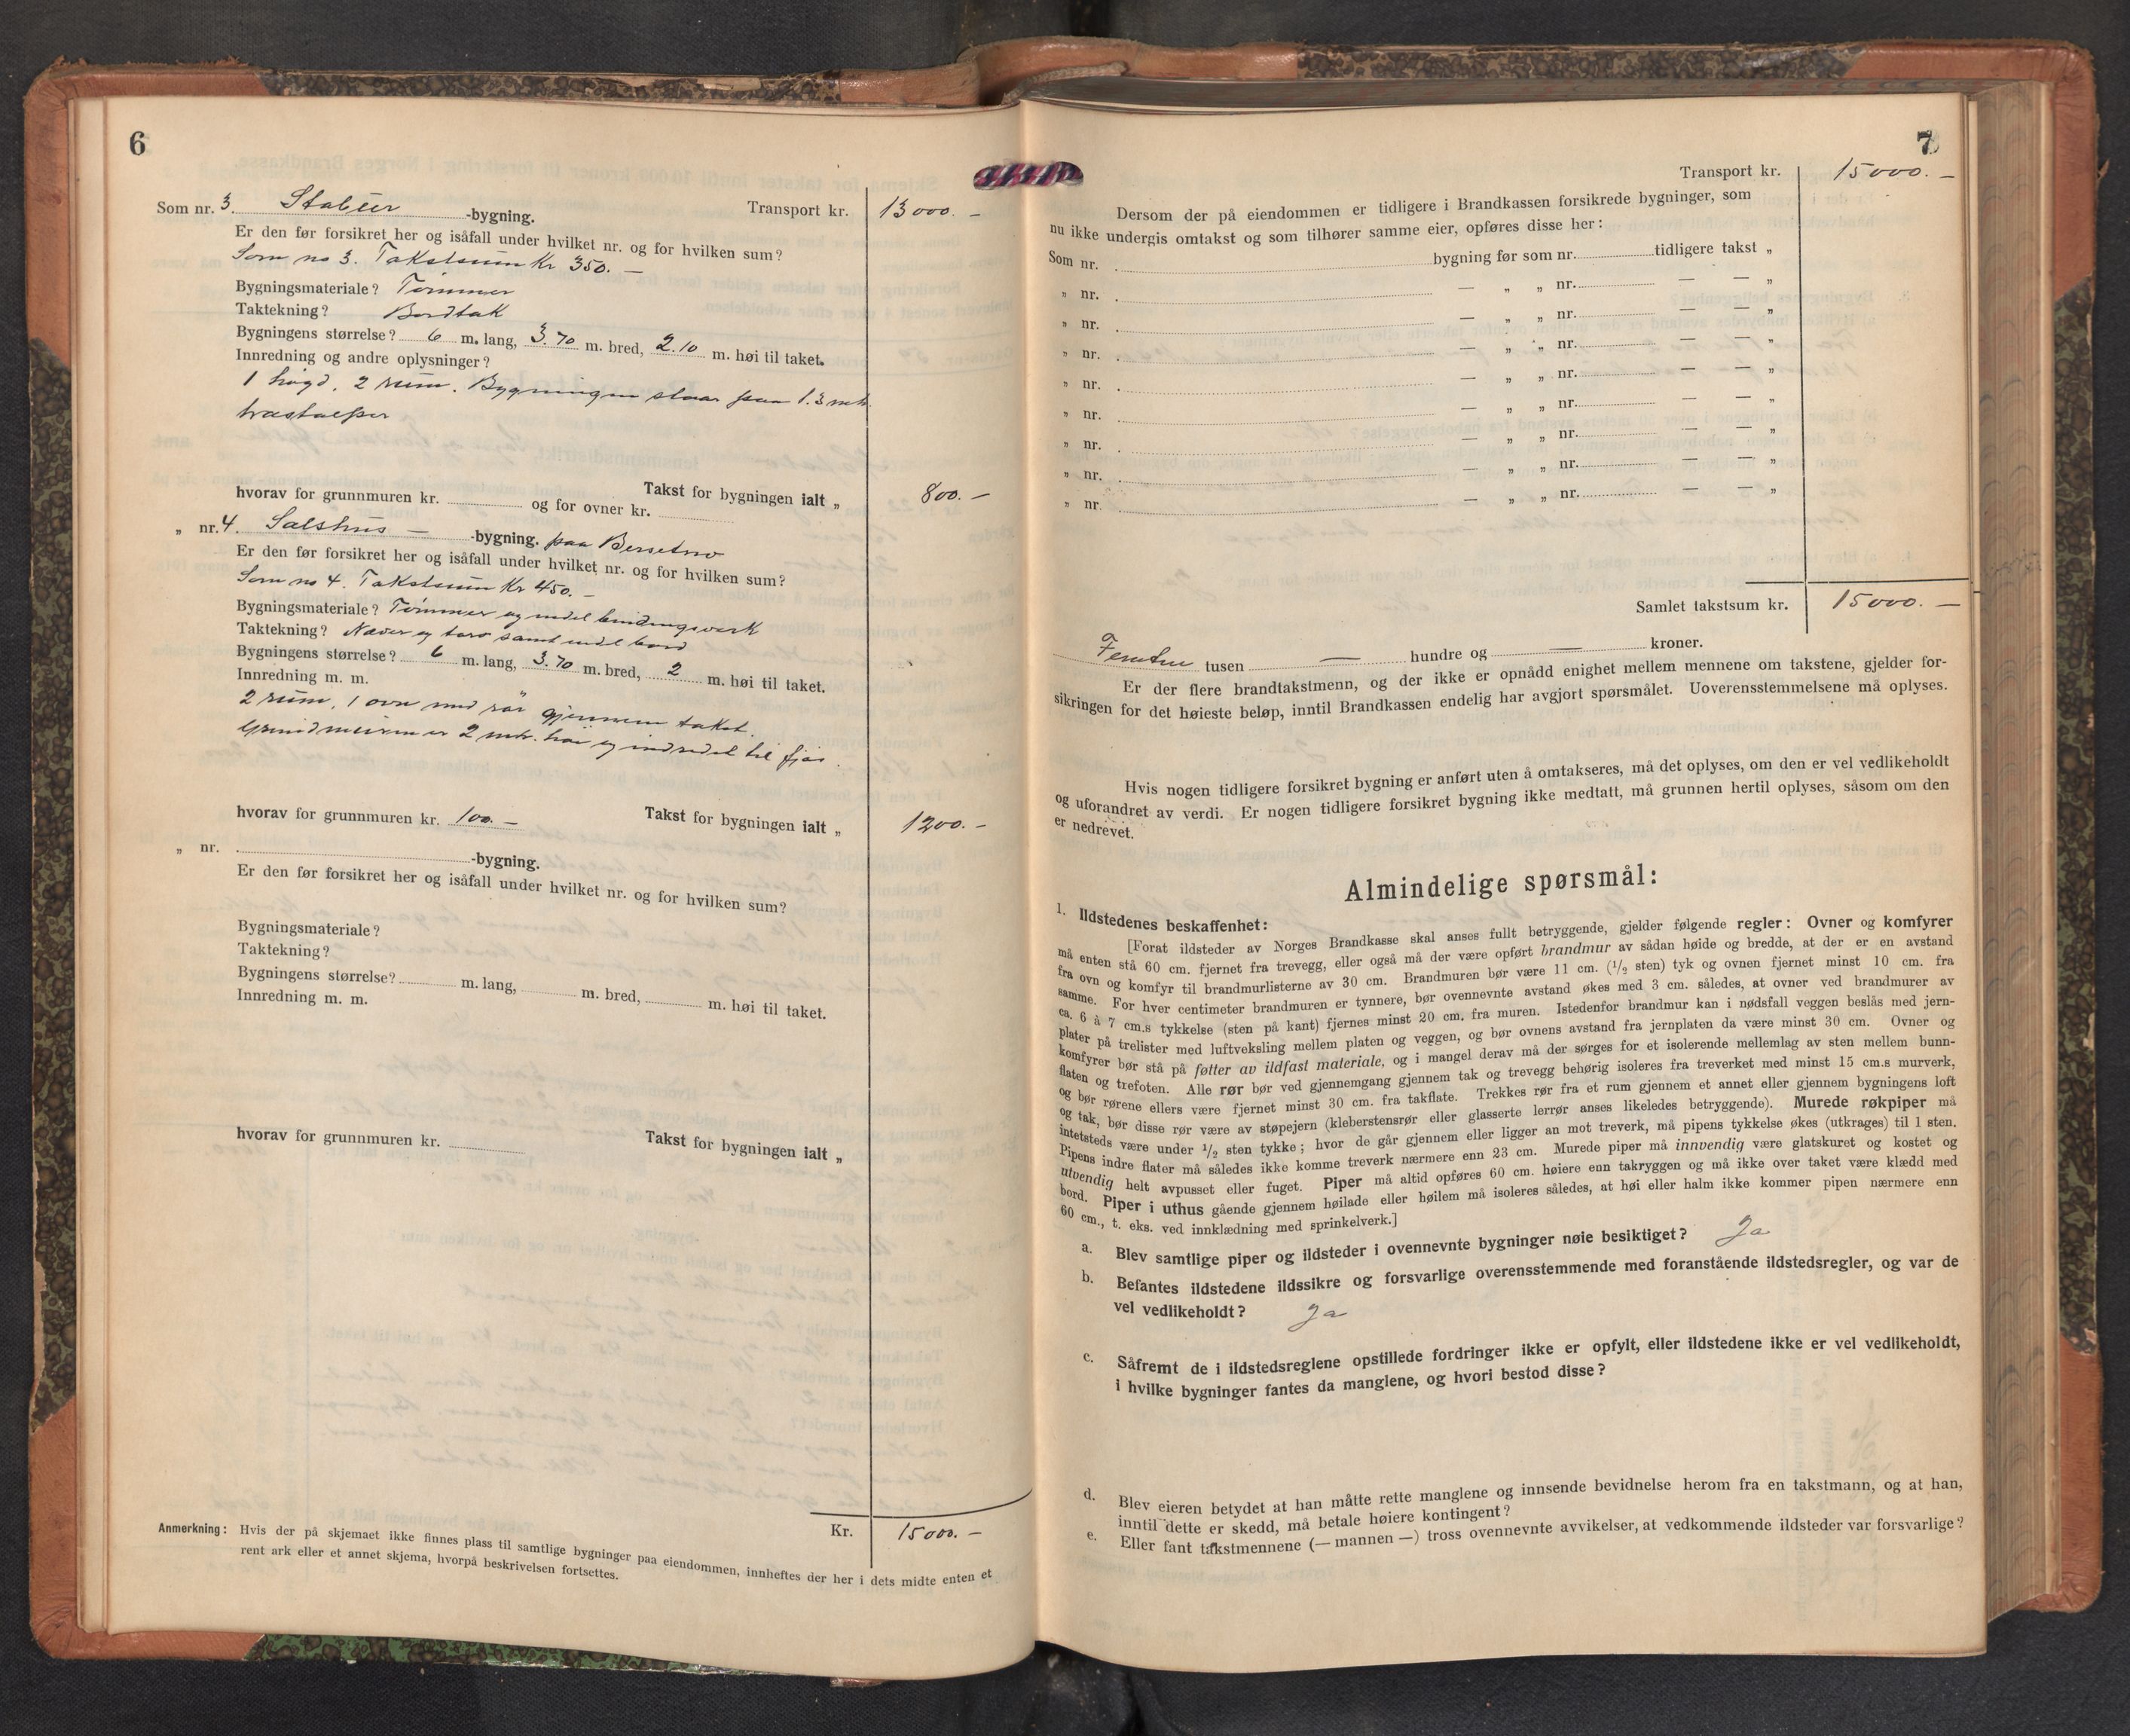 6
Som nr. 3. Stabur -bygning. Transport kr. 13000. -
Er den før forsikret her og isåfall under hvilket nr. og for hvilken sum?
Som no 3. Takstsum Kr 350. -
Bygningsmateriale? Tømmer
Taktekning? Bordtak
Bygningens størrelse? 6 m. lang, 3.70 m. bred, 2.10 m. høi til taket.
Innredning og andre oplysninger?
1 høgd. 2 rum. Bygningen staar paa 1.3 mtr.
træstolper
Takst for bygningen ialt „ 800. -
hvorav for grunnmuren kr. og for ovner kr.
„ nr. 4. Sælshus - -bygning. paa
Er den før forsikret her og isåfall under hvilket nr. og for hvilken sum?
Som no 4. Takstsum Kr 450. -
Bygningsmateriale? Tømmer og endel bindingsverk
Taktekning? Næver og torv samt endel bord
Bygningens størrelse? 6 m. lang, 3.70 m. bred, 2 m. høi til taket.
Innredning m. m.
2 rum, 1 ovn med rør gjennem taket.
Grundmuren er 2 mtr. høi og indredet til fjøs.
hvorav for grunnmuren kr. 100. - Takst for bygningen ialt „ 1200. -
„ nr. -bygning.
Er den før forsikret her og isåfall under hvilket nr. og for hvilken sum?
Bygningsmateriale?
Taktekning?
Bygningens størrelse? m. lang, m. bred, m. høi til taket.
Innredning m. m.
hvorav for grunnmuren kr. Takst for bygningen ialt „
Kr. 15000. -
Anmerkning: Hvis der på skjemaet ikke finnes plass til samtlige bygninger paa eiendommen, innheftes der her i dets midte enten et
rent ark eller et annet skjema, hvorpå beskrivelsen fortsettes.
7
Transport kr. 15000. -
Dersom der på eiendommen er tidligere i Brandkassen forsikrede bygninger, som
nu ikke undergis omtakst og som tilhører samme eier, opføres disse her:
Som nr. bygning før som nr. tidligere takst „
„ nr. — „ „ nr. — — „
„ nr. — „ „ nr. — — „
„ nr. — „ „ nr. — — „
„ nr. — „ „ nr. — — „
„ nr. — „ „ nr. — — „
„ nr. — „ „ nr. — — „
„ nr. — „ „ nr. — — „
„ nr. — „ „ nr. — — „
Samlet takstsum kr. 15000. -
Femten tusen — hundre og — kroner.
Er der flere brandtakstmenn, og der ikke er opnådd enighet mellem mennene om takstene, gjelder for-
sikringen for det høieste beløp, inntil Brandkassen endelig har avgjort spørsmålet. Uoverensstemmelsene må oplyses.
Hvis nogen tidligere forsikret bygning er anført uten å omtakseres, må det oplyses, om den er vel vedlikeholdt
og uforandret av verdi. Er nogen tidligere forsikret bygning ikke medtatt, må grunnen hertil oplyses, såsom om den
er nedrevet.
Almindelige spørsmål:
1. Ildstedenes beskaffenhet:
[Forat ildsteder av Norges Brandkasse skal anses fullt betryggende, gjelder følgende regler: Ovner og komfyrer
må enten stå 60 cm. fjernet fra trevegg, eller også må der være opført brandmur av sådan høide og bredde, at der er en avstand
fra ovn og komfyr til brandmurlisterne av 30 cm. Brandmuren bør være 11 cm. (1/2 sten) tyk og ovnen fjernet minst 10 cm. fra
samme. For hver centimeter brandmuren er tynnere, bør ovennevnte avstand økes med 3 cm. således, at ovner ved brandmurer av
ca. 6 à 7 cm.s tykkelse (sten på kant) fjernes minst 20 cm. fra muren. Istedenfor brandmur kan i nødsfall veggen beslås med jern-
plater på trelister med luftveksling mellem platen og veggen, og bør ovnens avstand fra jernplaten da være minst 30 cm. Ovner og
komfyrer bør stå på føtter av ildfast materiale, og i mangel derav må der sørges for et isolerende mellemlag av sten mellem bunn-
flaten og trefoten. Alle rør bør ved gjennemgang gjennem tak og trevegg behørig isoleres fra treverket med minst 15 cm.s murverk,
og bør rørene ellers være fjernet minst 30 cm. fra takflate. Trekkes rør fra et rum gjennem et annet eller gjennem bygningens loft
og tak, bør disse rør være av støpejern (kleberstensrør eller glasserte lerrør anses likeledes betryggende). Murede røkpiper må
intetsteds være under 1/2 sten tykke; hvor de går gjennem eller ligger an mot treverk, må pipens tykkelse økes (utkrages) til 1 sten.
Pipens indre flater må således ikke komme treverk nærmere enn 23 cm. Murede piper må innvendig være glatskuret og kostet og
utvendig helt avpusset eller fuget. Piper må altid opføres 60 cm. høiere enn takryggen og må ikke over taket være klædd med
bord. Piper i uthus gående gjennem høilade eller høilem må isoleres således, at høi eller halm ikke kommer pipen nærmere enn
60 cm., t. eks. ved innklædning med sprinkelverk.]
a. Blev samtlige piper og ildsteder i ovennevnte bygninger nøie besiktiget? Ja
b. Befantes ildstedene ildssikre og forsvarlige overensstemmende med foranstående ildstedsregler, og var de
vel vedlikeholdt? Ja
c. Såfremt de i ildstedsreglene opstillede fordringer ikke er opfylt, eller ildstedene ikke er vel vedlikeholdt,
i hvilke bygninger fantes da manglene, og hvori bestod disse?
d. Blev eieren betydet at han måtte rette manglene og innsende bevidnelse herom fra en takstmann, og at han,
inntil dette er skedd, må betale høiere kontingent?
e. Eller fant takstmennene (— mannen —) tross ovennevnte avvikelser, at vedkommende ildsteder var forsvarlige?